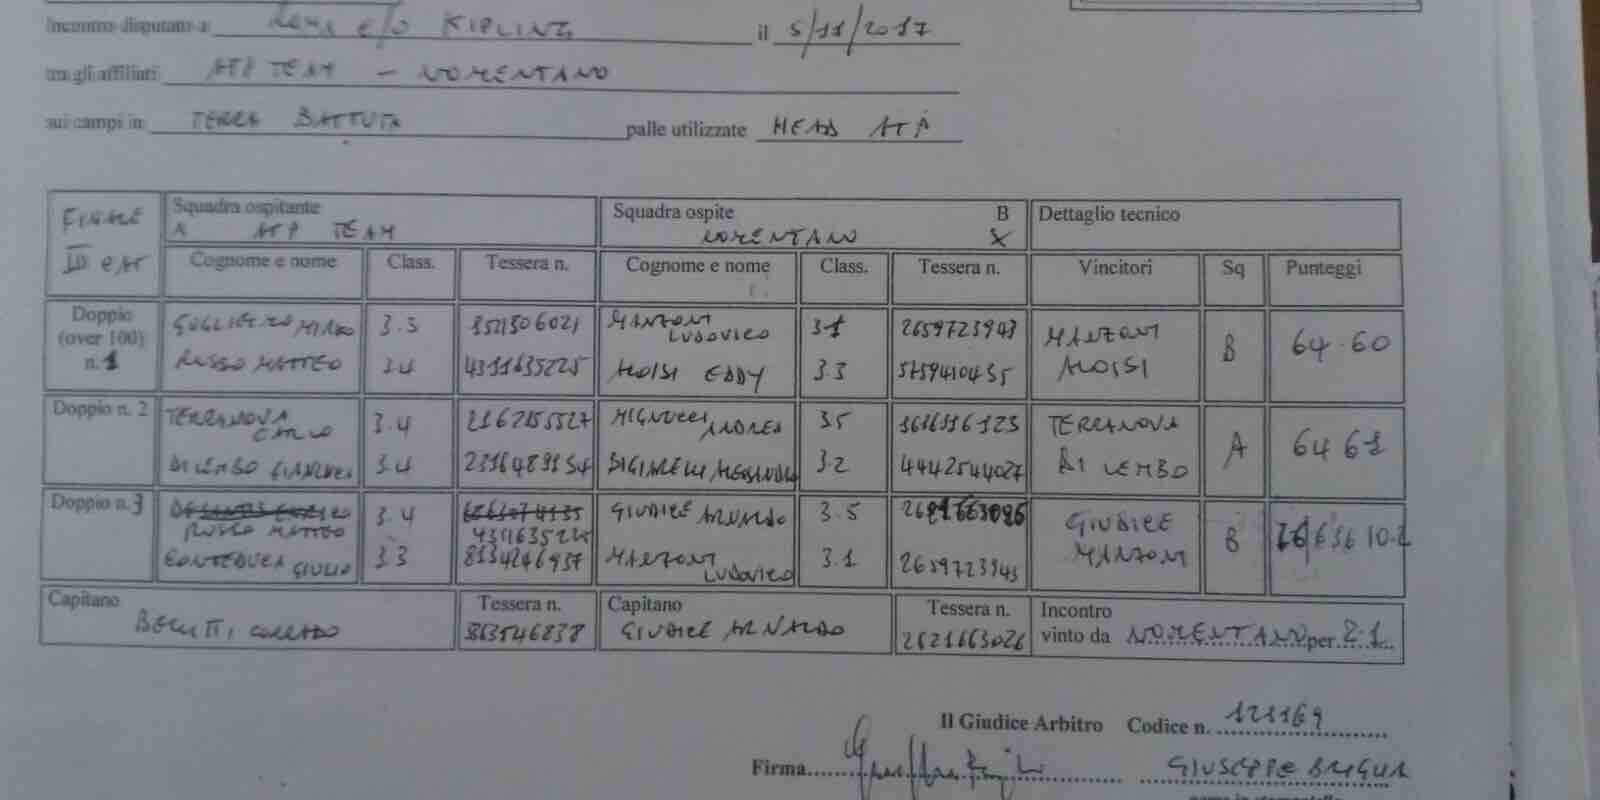 Incontro disputato a c/o KIPLING il 5/11/2017
tra gli affiliati ATP TEAM - NOMENTANO
sui campi in TERRA BATTUTA palle utilizzate HEAD ATP
FINALE
Squadra ospitante
A ATP TEAM
Squadra ospite B
NOMENTANO X
Dettaglio tecnico
Cognome e nome Class. Tessera n. Cognome e nome Class. Tessera n. Vincitori Sq Punteggi
Doppio
(over 100)
n. 1
3.3 MANZONI LUDOVICO 3.1 2659723943 MANZONI
RUSSO MATTEO 3.4 4311635225 ALOISI EDDY 3.3 5759410435 ALOISI
B 64-60
Doppio n. 2
TERRANOVA CARLO 3.4 2162155527 MIGNUCCI ANDREA 3.5 TERRANOVA
DI LEMBO GIANLUCA 3.4 2316489154 3.2 4442544027 DI LEMBO
A 64 61
Doppio n. 3
RUSSO MATTEO 3.4 GIUDICE ARNALDO 3.5 GIUDICE
GIULIO 3.3 8134246937 MANZONI LUDOVICO 3.1 2659723943 MANZONI
B 636 10-2
Capitano Tessera n. Capitano Tessera n. Incontro
CORRADO 863546838 GIUDICE ARNALDO 2621663026 vinto da NOMENTANO per 2-1
Il Giudice Arbitro Codice n. 121169
Firma GIUSEPPE